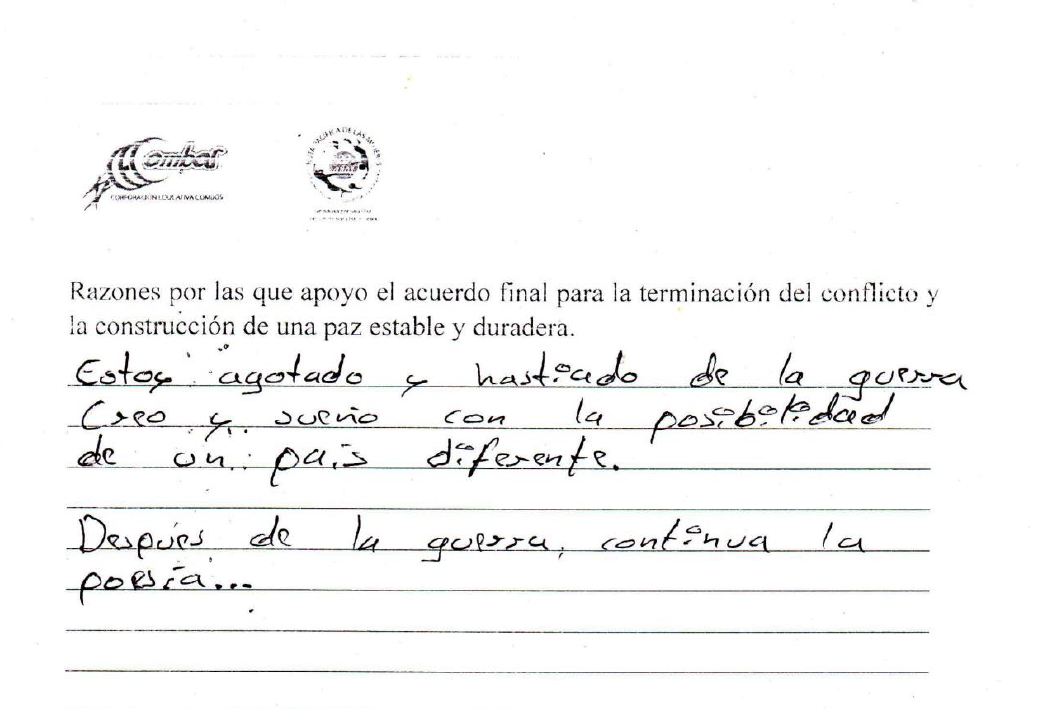 Combos
CORPORACION EDUCATIVA COMBOS
RUTA PACIFICA DE LAS MUJERES
Razones por las que apoyo el acuerdo final para la terminación del conflicto y
la construcción de una paz estable y duradera.
Estoy agotado y hastiado de la guerra
Creo y sueño con la posibilidad
de un país diferente.
Después de la guerra, continua la
poesía...